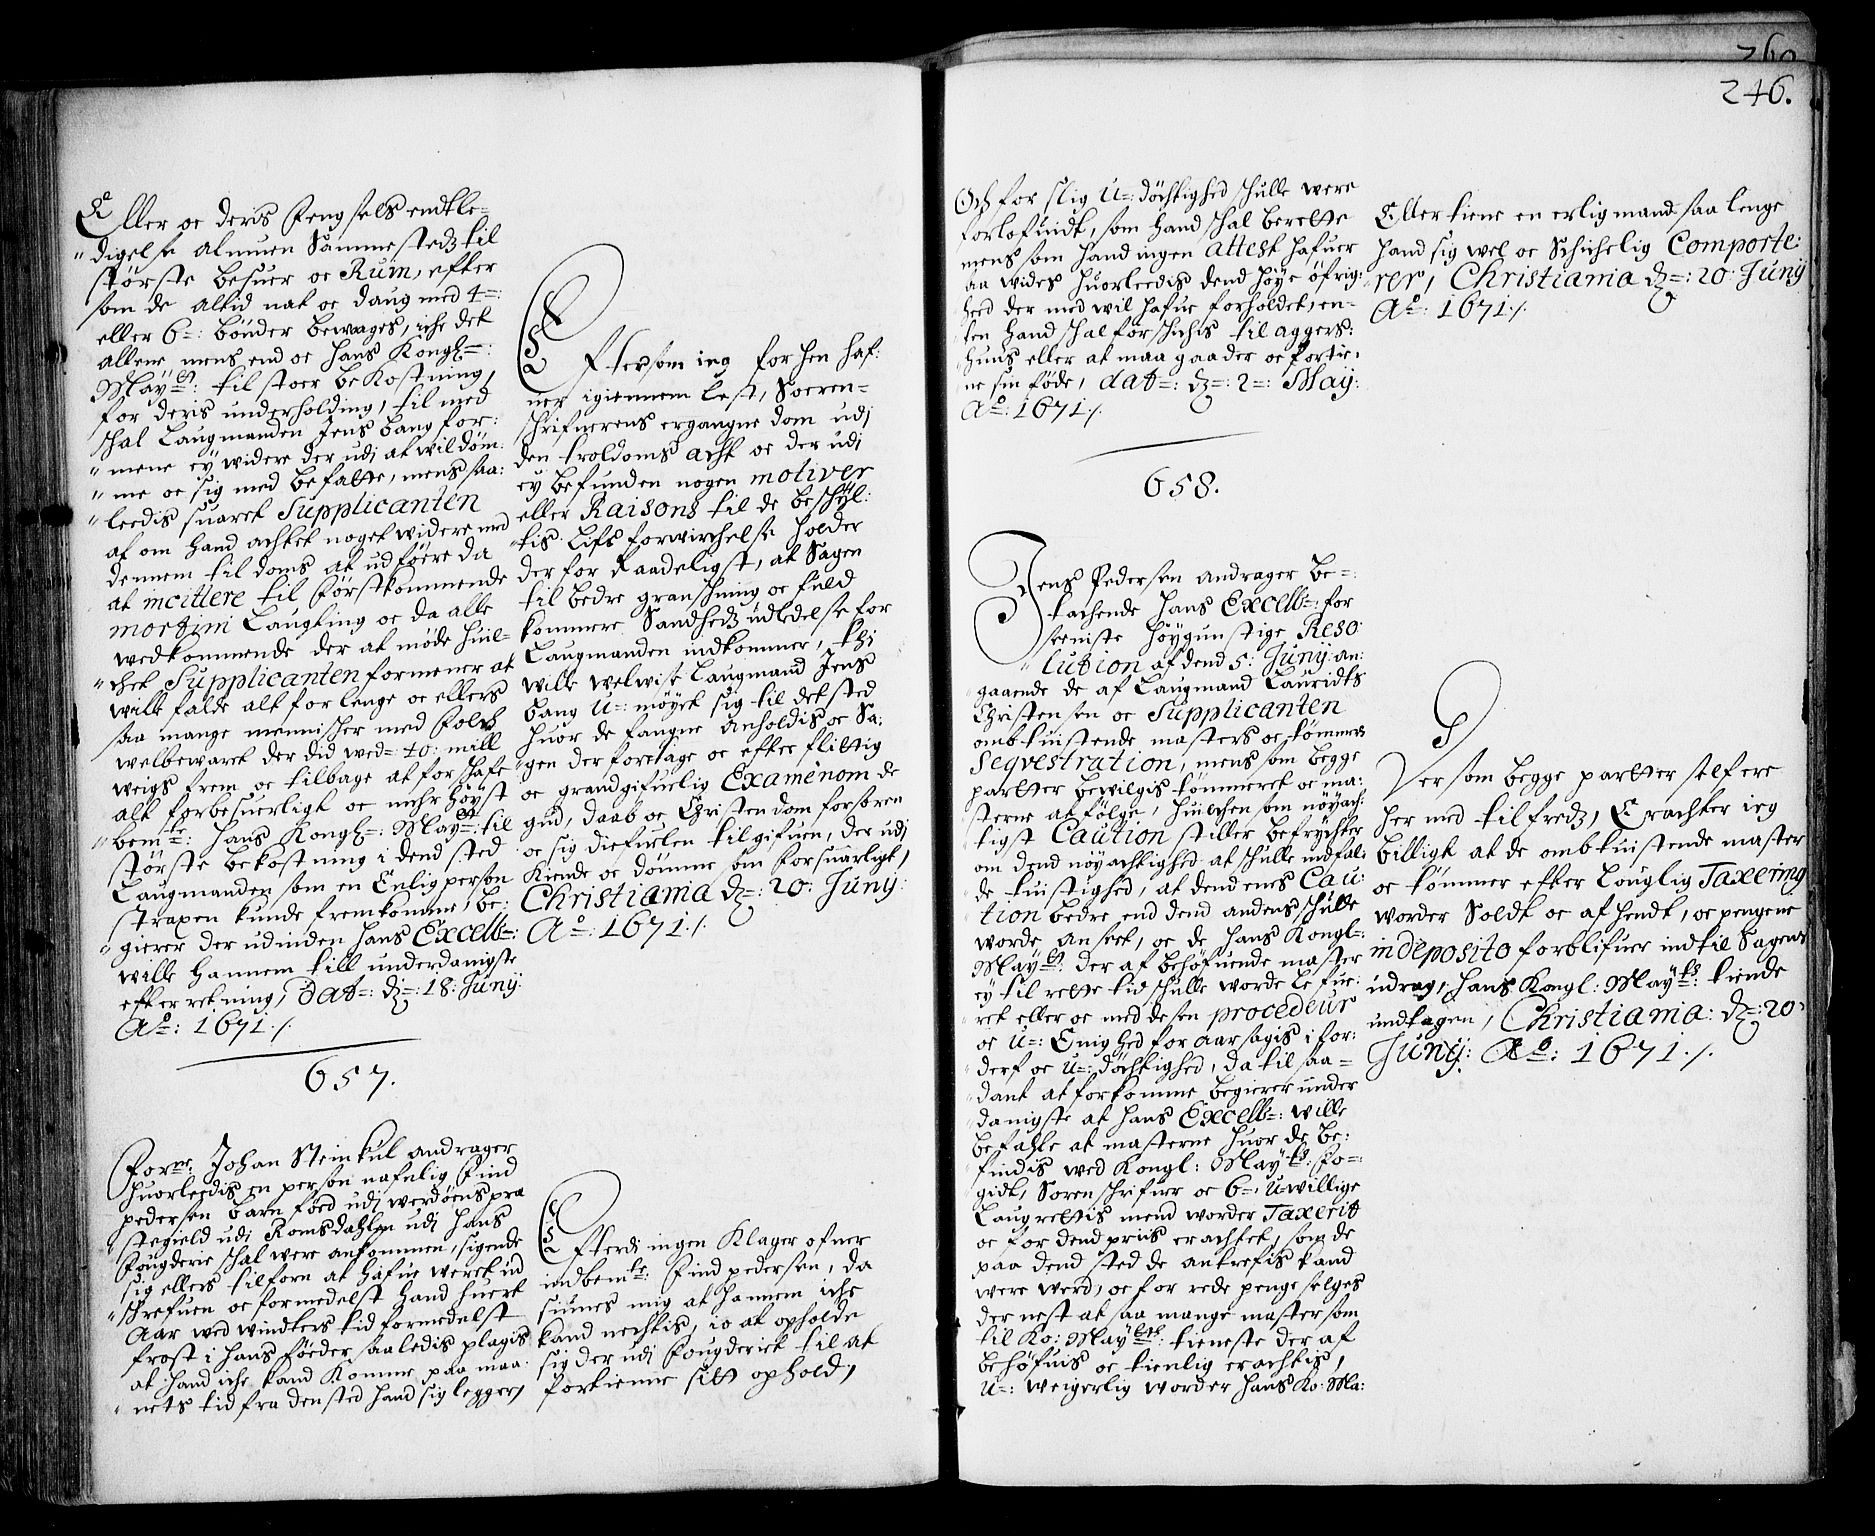 Eller oc deris Fengsels endtle-
digelse almuen Sammesteds til
største besuer oc Ruin, efter
som de altid nat oc daug med 4=:
eller 6=: bönder bewaages, iche det
allene mens end oc hans Kongl=:
Maÿts: til stoer beKostning,
for deris underholding, til med
schal Laugmanden Jens bang for:
mene eÿ widere der udi at wil döm:
me oc sig med befatte, mens saa:
leedis suaret Supplicanten
af om hand achtet noget widere med
dennem til doms at udföere da
at incittere til förstkommende
mortini Laugting oc da alle
wedkommende der at möde huil-
chet Supplicanten formener at
wille falde alt for lenge oc ellers
saa mange mennischer med Folch
welbewaret der did wed= 40: mill
weigs frem oc tilbage at forschafe
alt forbesuerligt oc mehr höÿst
bemte: hans Kongl=: Maÿts: til
största bekostning i dend sted
Laugmanden som en Enlig person
straxen kunde fremkomme, be:
gierer der udinden hans Excell=:
wille hannem till underdanigste
efterretning, dat=: dz=: 18: Junÿ:
Ao=: 1671 ./.
657.
Forne: Johan Steinkul andrager
huorleedis en person nafnlig Find
pedersen barn föed udj werdöens pra
stegield udi Romsdahlen udi hans
Fougderie schal were ankommen, sigende
sig ellers tilforn at hafue weret ud
schrefuen oc formedelst hand huert
Aar wed windters tid formedelst
frost i hans föeder saaledis plagis
at hand iche kand Komme paa maa:
nets tid fra den sted hand sig legger,
Eftersom ieg for hen haf:
uer igiennem lest, Soeren-
schrifuerens ergangne dom udj
den troldoms acht oc der udi
eÿ befunden nogen motiver
eller Raisons til de beschÿl:
tis Lifs forwirchelse holder
der for Raadeligst, at Sagen
til bedre granschning oc fuld
kommere Sandheds udledelse for
Laugmanden indkommer, thi
wille welwise Laugmand Jens
bang u=: möÿet sig til det sted
huor de fangne anholdis oc Sa:
gen der foretage oc efter flittig
oc grandgifuelig Examenom de
gud, daab oc Christendom forsoren
oc sig diefuelen tilgifuen, der udj
Kiende oc dömme som forsuarligt,
Christiania dz=: 20: Junÿ:
Ao=: 1671 ./.
Efterdi ingen Klager ofuer
indbemte: Find pedersen, da
siunes mig at hannem iche
kand nechtis, io at opholde
sig der udi Fougderiet til at
fortienne sitt ophold,
246.
Och for slig u=: döchtighed schulle were
forlofuindt, som hand schal berette
mens som hand ingen attest hafuer
aa wides huorleedis dend höÿe öfrig:
hed der med wil hafue forholdet, en-
ten hand schal forschichis til aggers:
huus eller at maa gaa der oc fortie:
ne sin föde, dat=: dz=: 2=: Maÿ:
Ao=: 1671 ./.
658.
Jens Pedersen andrager be-:
tachende hans Excell=: for
seeniste höÿgunstige Reso:
lution af dend 5: Junÿ: an:
gaaende de af Laugmand Lauridts
Christensen oc Supplicanten
omtuistende masters oc tömmers
Seqvestration, mens som begge
partter bewilgis tömmeret oc ma:
sterne at fölge, huilchen som nöÿach:
tigst Caution stiller befrÿchter
om dend nöÿachtighed at schulle indfal:
de tuistighed, at dend enes Cau:
tion bedre end dend andens schulle
worde anseet, oc de hans Kongl=:
Maÿts: der af behöfuende master
eÿ til rette tid schulle worde lefue:
ret eller oc med desen procedeur
oc u=: Enighed for aarsagis i for:
derf oc u=: döchtighed, da til saa=
dant at forkomme begierer under
danigste at hans Excell=: wille
befahle at masterne huor de be:
findis wed Kongl: Maÿts: Fo=:
gidt, Sorenschrifuer oc 6=: u=willige
Laugrettis mend worder Taxerit
oc for dend priis erachtet, som de
paa dend sted de antrefis kand
were werd, oc for rede penge selges
der nest at saa mange master som
til Ko: Maÿtts: tieneste der af
behöfuis oc tienlig erachtis,
u=: weigerlig worder hans Ko: Ma:
Eller tiene en erlig mand saa lenge
hand sig wel oc Schichelig Comporte:
rer, Christiania dz=: 20: Junÿ
Ao=: 1671 ./.
Dersom begge partter self ere
her med tilfreds, Erachter ieg
billigt at de omtuistende master
oc tömmer efter Louglig Taxering
worder Soldt oc afhendt, oc pengene
in deposito forblifuer indtil Sagens
udrag, hans Kongl: Maÿts: tiende
undtagen, Christiania: dz=: 20:
Junÿ: Ao=: 1671 ./.